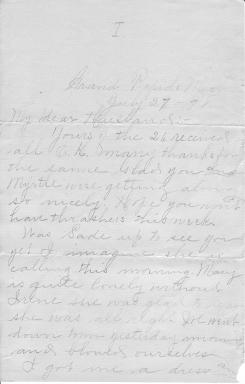 I
Grand Rapids
July 27 - 9
My dear Husband:-
Yours of the 26 received
all O.K. many thanks for
the same. Glad you and
Myrtle were getting along
so nicely. Hope you won't
have thrashers this week.
Was Sade up to see you
yet I imagine she is
calling this morning. Mary
is quite lonely without
Irene she was glad to
she was all right. We went
down town yesterday morning
and blowed ourselves
I got me a dress